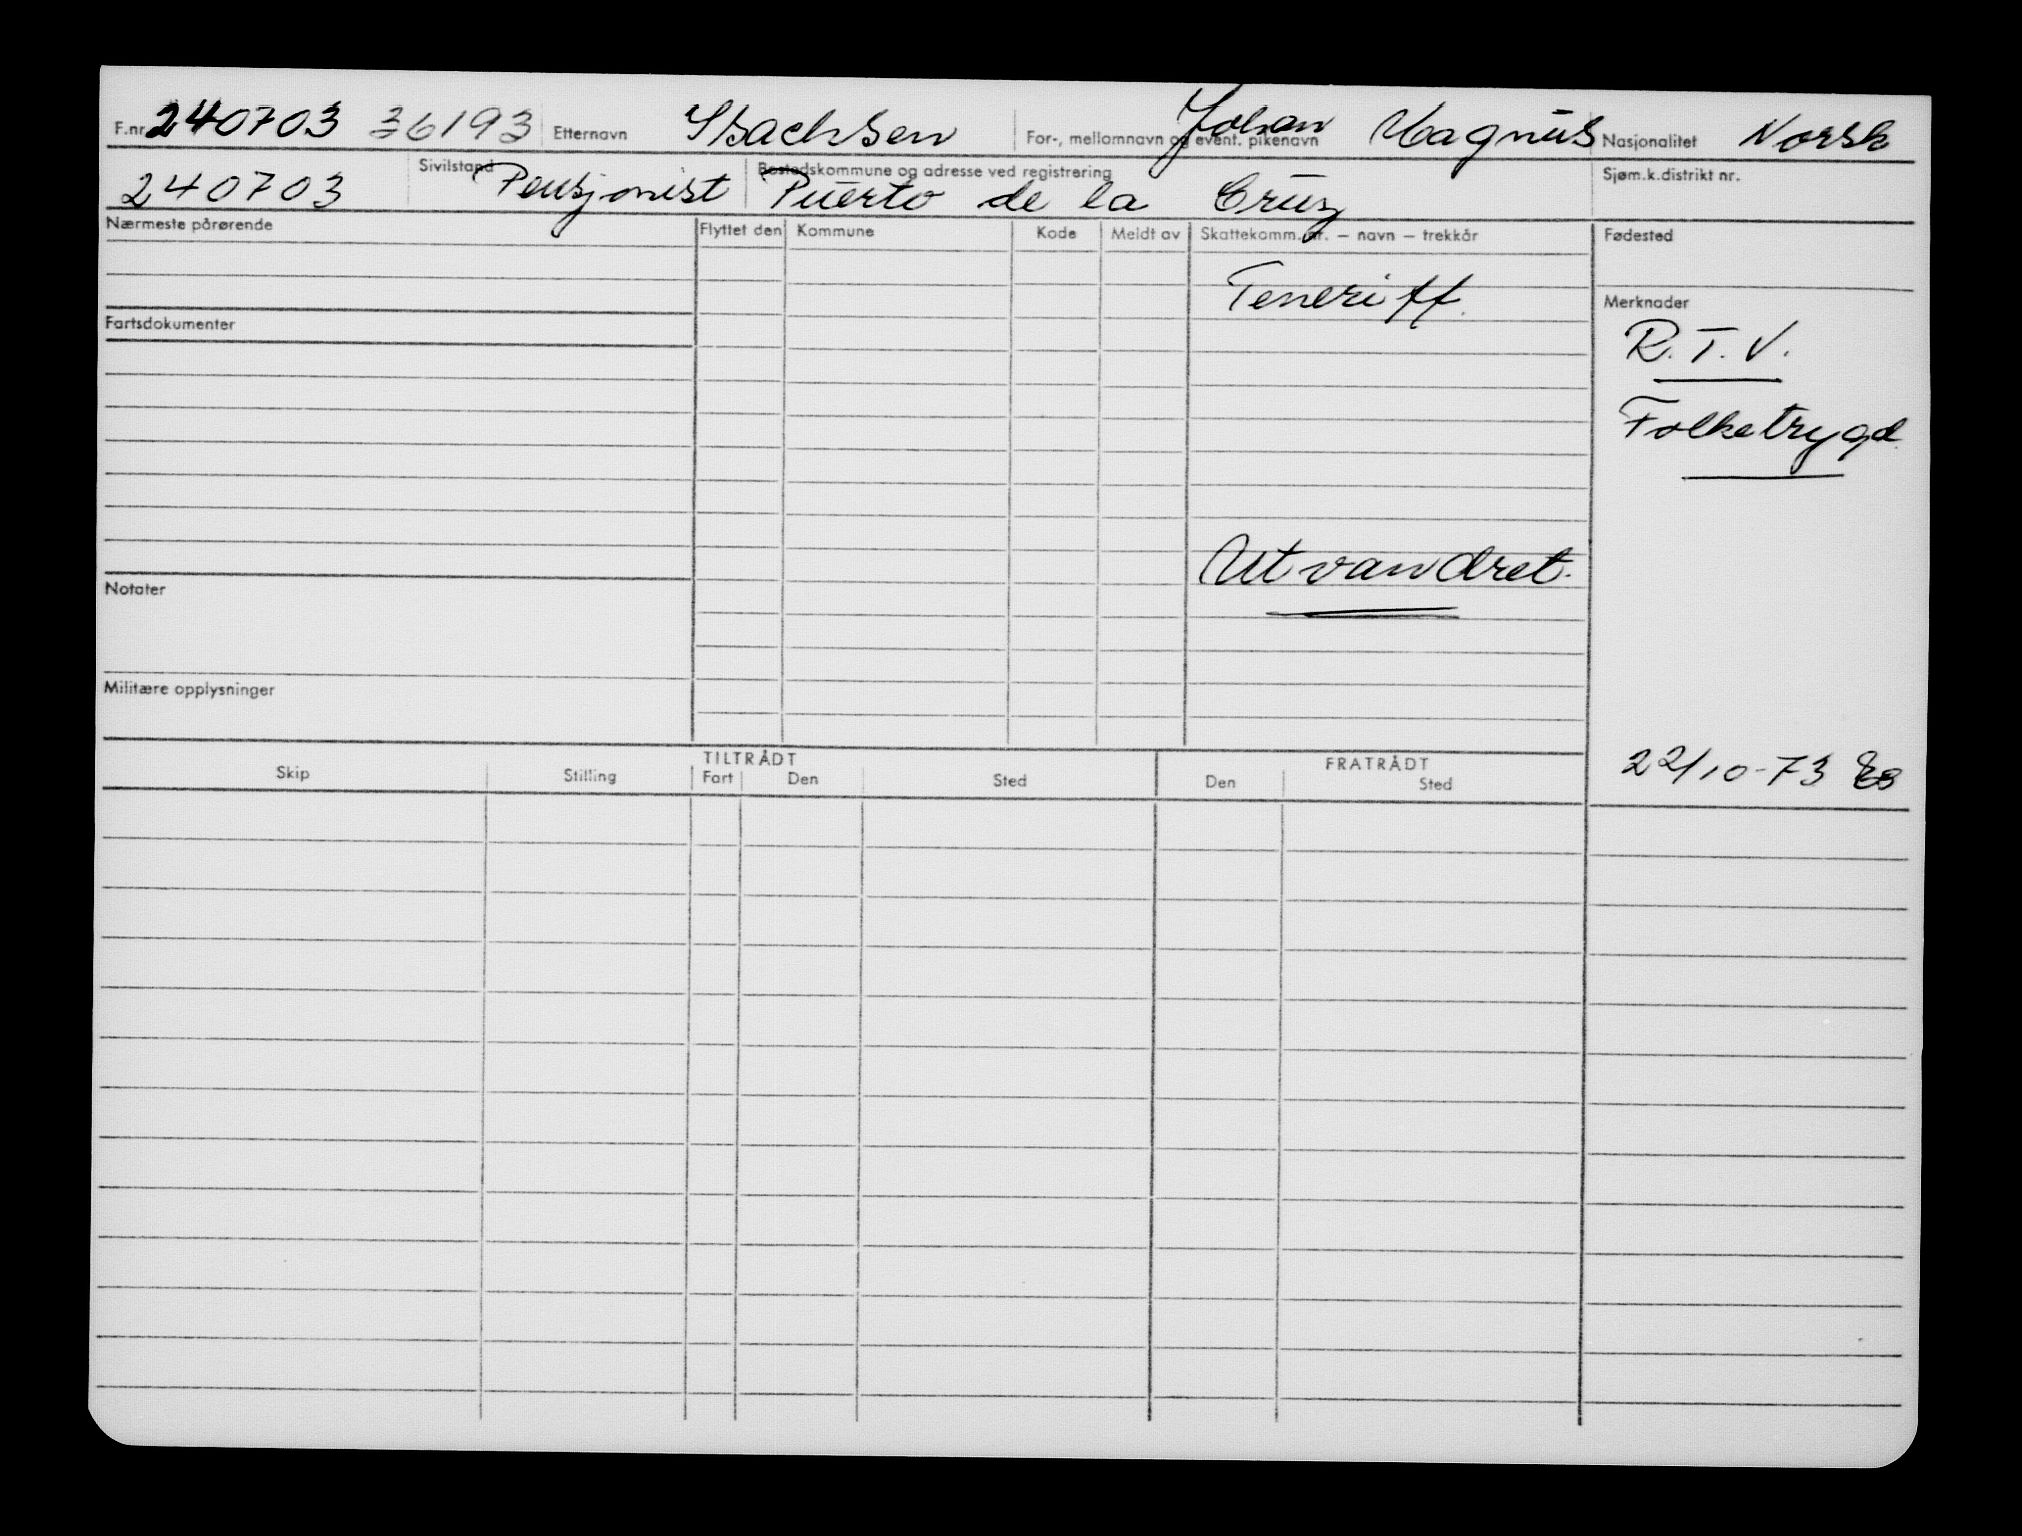 F.nr. 240703 36193 Etternavn Isachsen For-, mellomnavn og event. pikenavn Johan Magnus Nasjonalitet Norsk
240703 Sivilstand Pensjonist Bostedskommune og adresse ved registrering Puerto de la Cruz Sjøm.k.distrikt nr.
Nærmeste pårørende Flyttet den Kommune Kode Meldt av Skattekomm. nr. – navn – trekkår Fødested
Teneriff.
Merknader
Fartsdokumenter
R.T.V.
Folketrygd
Utvandret.
Notater
Militære opplysninger
TILTRÅDT FRATRÅDT
Skip Stilling Fart Den Sted Den Sted
22/10-73